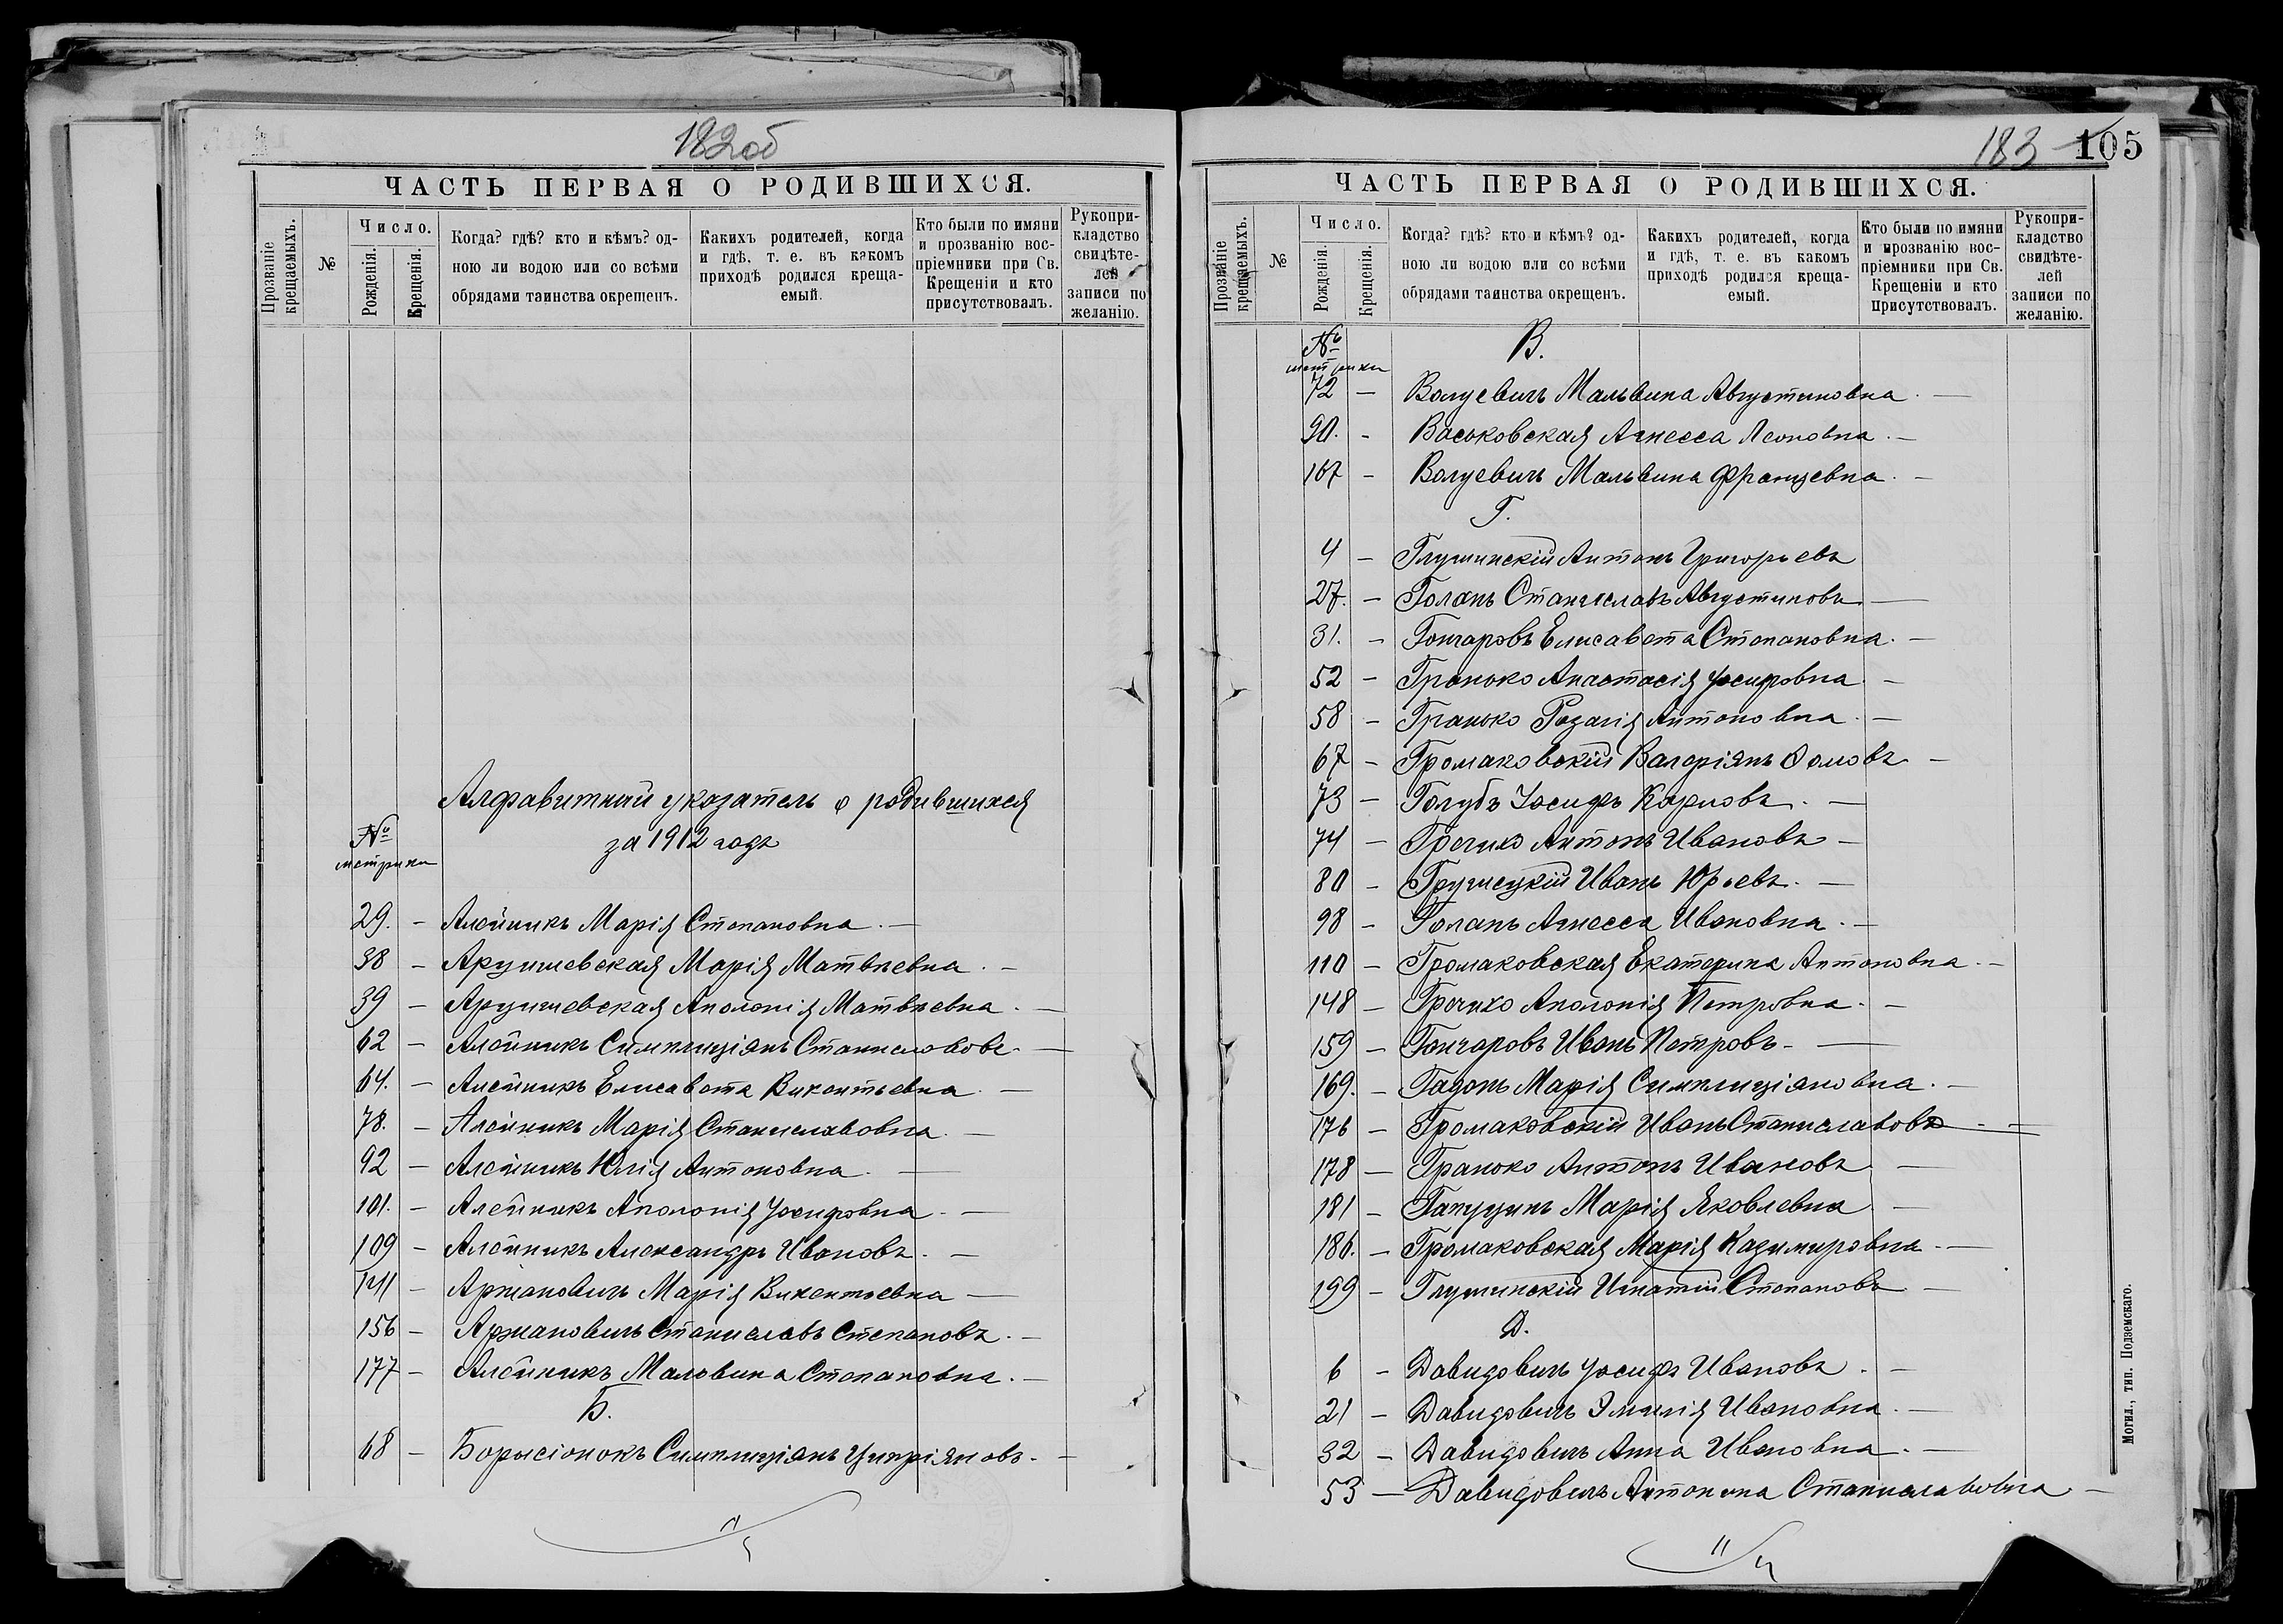 182об
ЧАСТЬ ПЕРВАЯ О РОДИВШИХСЯ.
Прозваніе крещаемыхъ.
№
Число.
Рожденія.
Крещенія.
Когда? гдѣ? кто и кѣмъ? од-
ною ли водою или со всѣми
обрядами таинства окрещенъ.
Какихъ родителей, когда
и гдѣ, т. е. въ какомъ
приходѣ родился креща-
емый.
Кто были по имяни
и прозванію вос-
пріемники при Св.
Крещеніи и кто
присутствовалъ.
Рукопри-
кладство
свидѣте-
лей
записи по
желанію.
Алфавитный указатель о родившихся
за 1912 годъ
№
метрики
29. — Алейникъ Марія Степановна. —
38 — Арцишевская Марія Матвѣевна. —
39 — Арцишевская Аполонія Матвѣевна. —
62 — Алейникъ Симплиціянъ Станиславовъ. —
64. — Алейникъ Елисавета Викентьевна. —
78. — Алейникъ Марія Станиславовна. —
92 — Алейникъ Юлія Антоновна. —
101. — Алейникъ Аполонія Іосифовна. —
109 — Алейникъ Александръ Ивановъ. —
141 — Аржановичъ Марія Викентьевна —
156 — Аржановичъ Станиславъ Степановъ. —
177 — Алейникъ Мальвина Степановна. —
Б.
68 — Борысіонокъ Симплиціянъ Ципріяновъ. —
183 105
ЧАСТЬ ПЕРВАЯ О РОДИВШИХСЯ.
Прозваніе крещаемыхъ.
№
Число.
Рожденія.
Крещенія.
Когда? гдѣ? кто и кѣмъ? од-
ною ли водою или со всѣми
обрядами таинства окрещенъ.
Какихъ родителей, когда
и гдѣ, т. е. въ какомъ
приходѣ родился креща-
емый.
Кто были по имяни
и прозванію вос-
пріемники при Св.
Крещеніи и кто
присутствовалъ.
Рукопри-
кладство
свидѣте-
лей
записи по
желанію.
№
метрики
В.
72 — Волуевичъ Мальвина Августиновна. —
90. - Васьковская Агнесса Леоновна. —
167 - Волуевичъ Мальвина Францевна. —
Г.
4 — Глушинскій Антонъ Григорьевъ
27. — Голанъ Станиславъ Августиновъ —
31. - Гончаровъ Елисавета Степановна. —
52 — Гронько Анастасія Іосифовна. —
58 — Гранько Розалія Антоновна. —
67 — Громаковскій Валеріянъ Фомовъ —
73 — Голубъ Іосифъ Карповъ. —
74 — Гречихо Антонъ Ивановъ —
80 — Грушецкій Иванъ Юрьевъ. —
98 — Голанъ Агнесса Ивановна. —
110 — Громаковская Екатерина Антоновна. —
148 — Гречихо Аполонія Петровна. —
159 — Гончаровъ Иванъ Петровъ. —
169. — Гадонъ Марія Симплиціяновна. —
176 — Громаковскій Иванъ Станиславовъ. —
178 — Гранько Антонъ Ивановъ —
181 — Марія Яковлевна —
186. — Громаковская Марія Казимировна. —
199 — Глушинскій Игнатій Степановъ —
Д.
6 — Давидовичъ Іосифъ Ивановъ. —
21 — Давидовичъ Эмилія Ивановна. —
32 — Давидовичъ Анна Ивановна. —
53 — Давидовичъ Антонина Станиславовна. —
Могил., тип. Подземскаго.